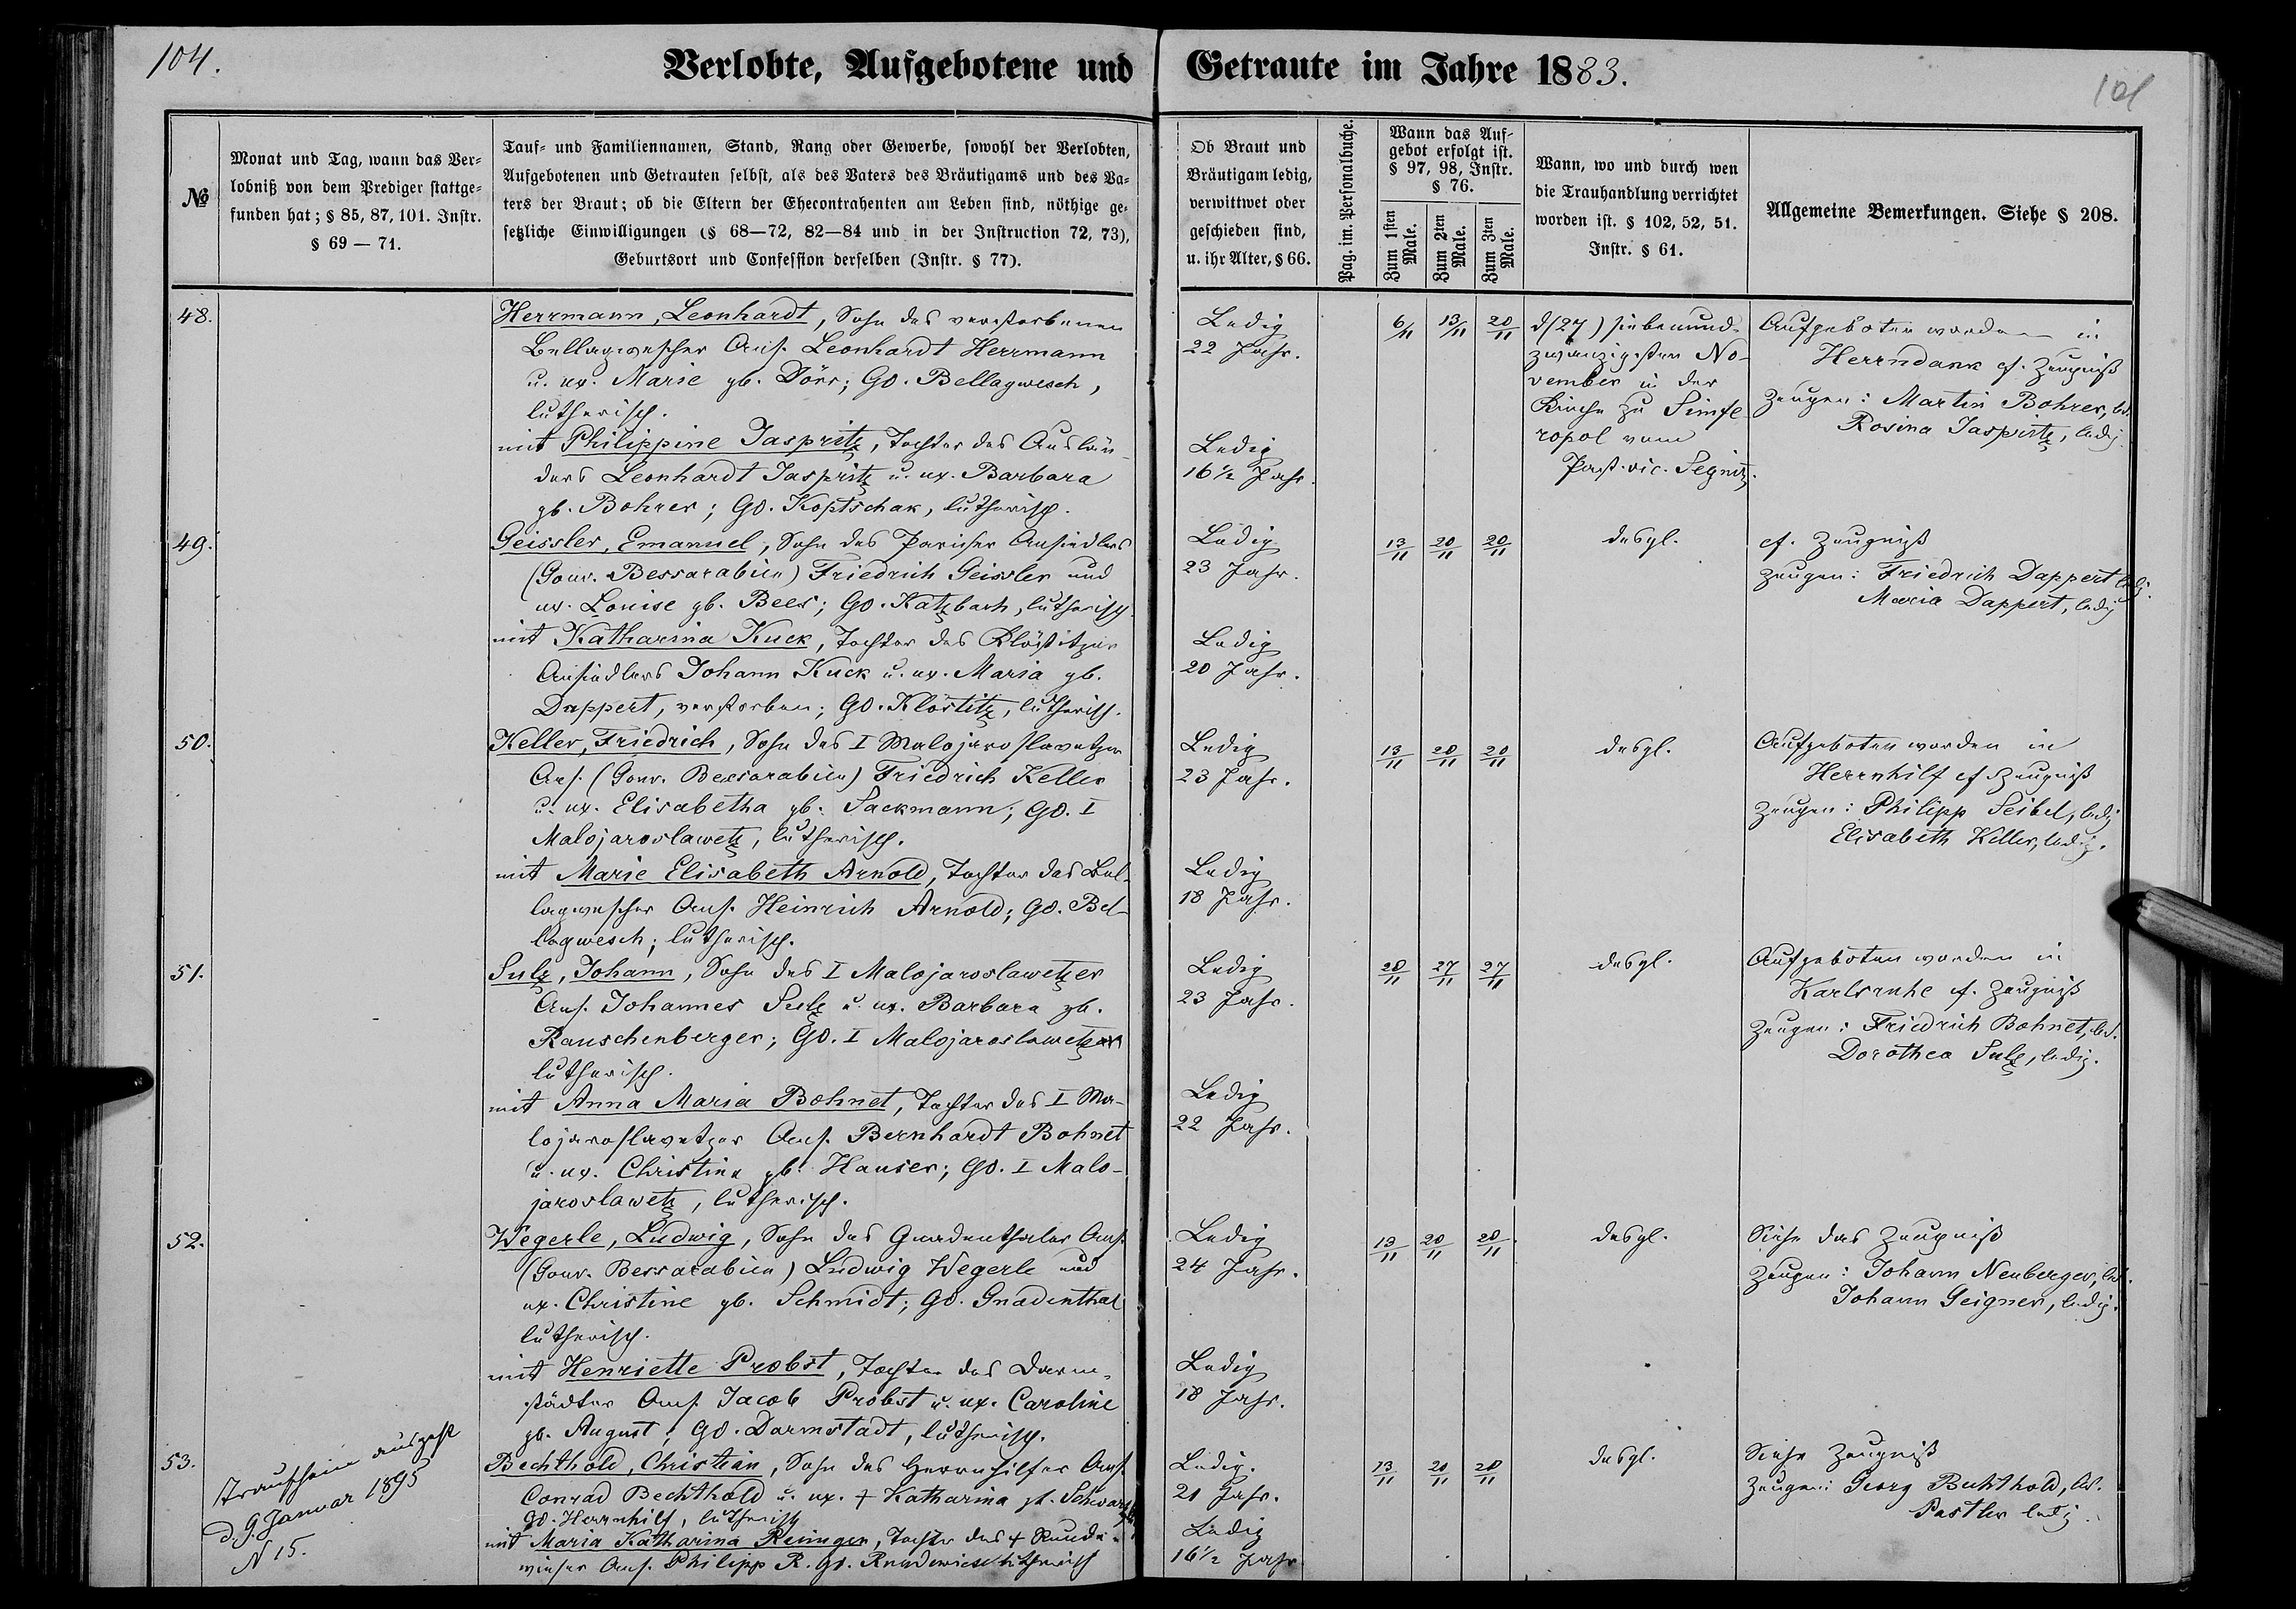 104.
Verlobte, Aufgebotene und Getraute im Jahre 1883.
101
№
Monat und Tag, wann das Ver=
lobniß von dem Prediger stattge=
funden hat; § 85, 87, 101. Instr.
§ 69 — 71.
Tauf= und Familiennamen, Stand, Rang oder Gewerbe, sowohl der Verlobten,
Aufgebotenen und Getrauten selbst, als des Vaters des Bräutigams und des Va=
ters der Braut; ob die Eltern der Ehecontrahenten am Leben sind, nöthige ge=
setzliche Einwilligungen (§ 68—72, 82—84 und in der Instruction 72, 73),
Geburtsort und Confession derselben (Instr. § 77).
Ob Braut und
Bräutigam ledig,
verwittwet oder
geschieden sind,
u. ihr Alter, § 66.
Pag. im. Personalbuche.
Wann das Auf-
gebot erfolgt ist.
§ 97, 98, Instr.
§ 76.
Zum 1sten Male.
Zum 2ten Male.
Zum 3ten Male.
Wann, wo und durch wen
die Trauhandlung verrichtet
worden ist. § 102, 52, 51.
Instr. § 61.
Allgemeine Bemerkungen. Siehe § 208.
48.
Herrmann, Leonhardt, Sohn des verstorbenen
Bellagwescher Ans. Leonhardt Herrmann
u. ux. Marie gb. Dörr; GO. Bellagwesch,
lutherisch.
mit Philippine Jaspritz, Tochter des Auslän-
ders Leonhardt Jaspritz u. ux. Barbara
gb. Bohrer; GO. Koptschak, lutherisch.
Ledig
22 Jahr.
Ledig
16 1/2 Jahr.
6/11 13/11 20/11
d (27) siebenund-
zwanzigsten No-
vember in der
Kirche zu Simfe
ropol vom
Past. vic. Segnitz.
Aufgeboten worden in
Herrndank cf. Zeugniß
Zeugen: Martin Bohrer, led.
Rosina Jaspritz, ledig
49.
Geissler, Emanuel, Sohn des Pariser Ansiedlers
(Gouv. Bessarabien) Friedrich Geissler und
ux. Louise gb. Beer; GO. Katzbach, lutherisch
mit Katharina Kuck, Tochter des Klöstitzer
Ansiedlers Johann Kuck u. ux. Maria gb.
Dappert, verstorben; GO. Klöstitz, lutherisch.
Ledig
23 Jahr.
Ledig
20 Jahr.
13/11 20/11 20/11
desgl.
cf. Zeugniß
Zeugen: Friedrich Dappert ledig.
Maria Dappert, ledig
50.
Keller, Friedrich, Sohn des I Malojaroslavetzer
Ans. (Gouv. Bessarabien) Friedrich Keller
u. ux. Elisabetha gb. Sackmann; GO. I
Malojaroslawetz, lutherisch.
mit Marie Elisabeth Arnold, Tochter des Bel-
lagwescher Ans. Heinrich Arnold; GO. Bel-
lagwesch; lutherisch.
Ledig
23 Jahr.
Ledig
18 Jahr.
13/11 20/11 20/11
desgl.
Aufgeboten worden in
Herrnhilf cf Zeugniß
Zeugen: Philipp Seibel, ledig
Elisabeth Keller, ledig.
51.
Sulz, Johann, Sohn des I Malojaroslawetzer
Ans. Johannes Sulz u. ux. Barbara gb.
Rauschenberger; GO. I Malojaroslawetz
lutherisch.
mit Anna Maria Bohnet, Tochter des I Ma-
lojaroslavetzer Ans. Bernhardt Bohnet
u. ux. Christina gb. Hauser; GO. I Malo-
jaroslawetz, lutherisch.
Ledig
23 Jahr.
Ledig
22 Jahr.
20/11 27/11 27/11
desgl.
Aufgeboten worden in
Karlsruhe cf. Zeugniß
Zeugen: Friedrich Bohnet, led.
Dorothea Sulz, ledig.
52.
Wegerle, Ludwig, Sohn des Gnadenthaler Ans.
(Gouv. Bessarabien) Ludwig Wegerle und
ux. Christine gb. Schmidt; GO. Gnadenthal
lutherisch.
mit Henriette Probst, Tochter des Darm-
städter Ans. Jacob Probst u. ux. Caroline
gb. August; GO. Darmstadt, lutherisch.
Ledig
24 Jahr.
Ledig
18 Jahr.
13/11 20/11 20/11
desgl.
Siehe das Zeugniß
Zeugen: Johann Neuberger, led.
Johann Geigner, ledig.
53.
Trauschein
d. 9. Januar 1895
N 15.
Bechthold, Christian, Sohn des Herrnhilfer Ans.
Conrad Bechthold u. ux. † Katharina gb.
GO. Herrnhilf, lutherisch
mit Maria Katharina Reininger, Tochter des † Runde-
wieser Ans. Philipp R. GO. Rundewiese lutherisch
Ledig.
21 Jahr.
Ledig
16 1/2 Jahr
13/11 20/11 20/11
desgl.
Siehe Zeugniß
Zeugen: Georg Bechthold, led.
ledig.